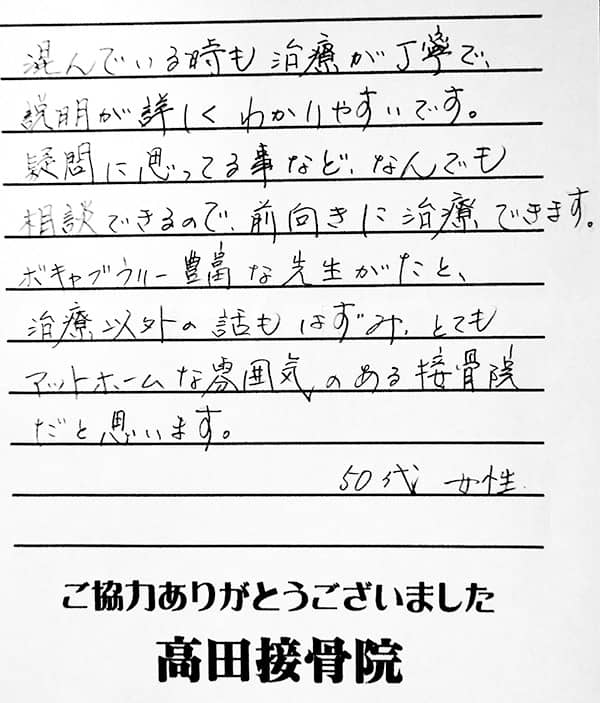 混んでいる時も治療が丁寧で、
説明が詳しくわかりやすいです。
疑問に思ってる事など、なんでも
相談できるので、前向きに治療できます。
ボキャブラリー豊富な先生がたと、
治療以外の話もはずみ、とても
アットホームな雰囲気のある接骨院
だと思います。
50代 女性
ご協力ありがとうございました
高田接骨院